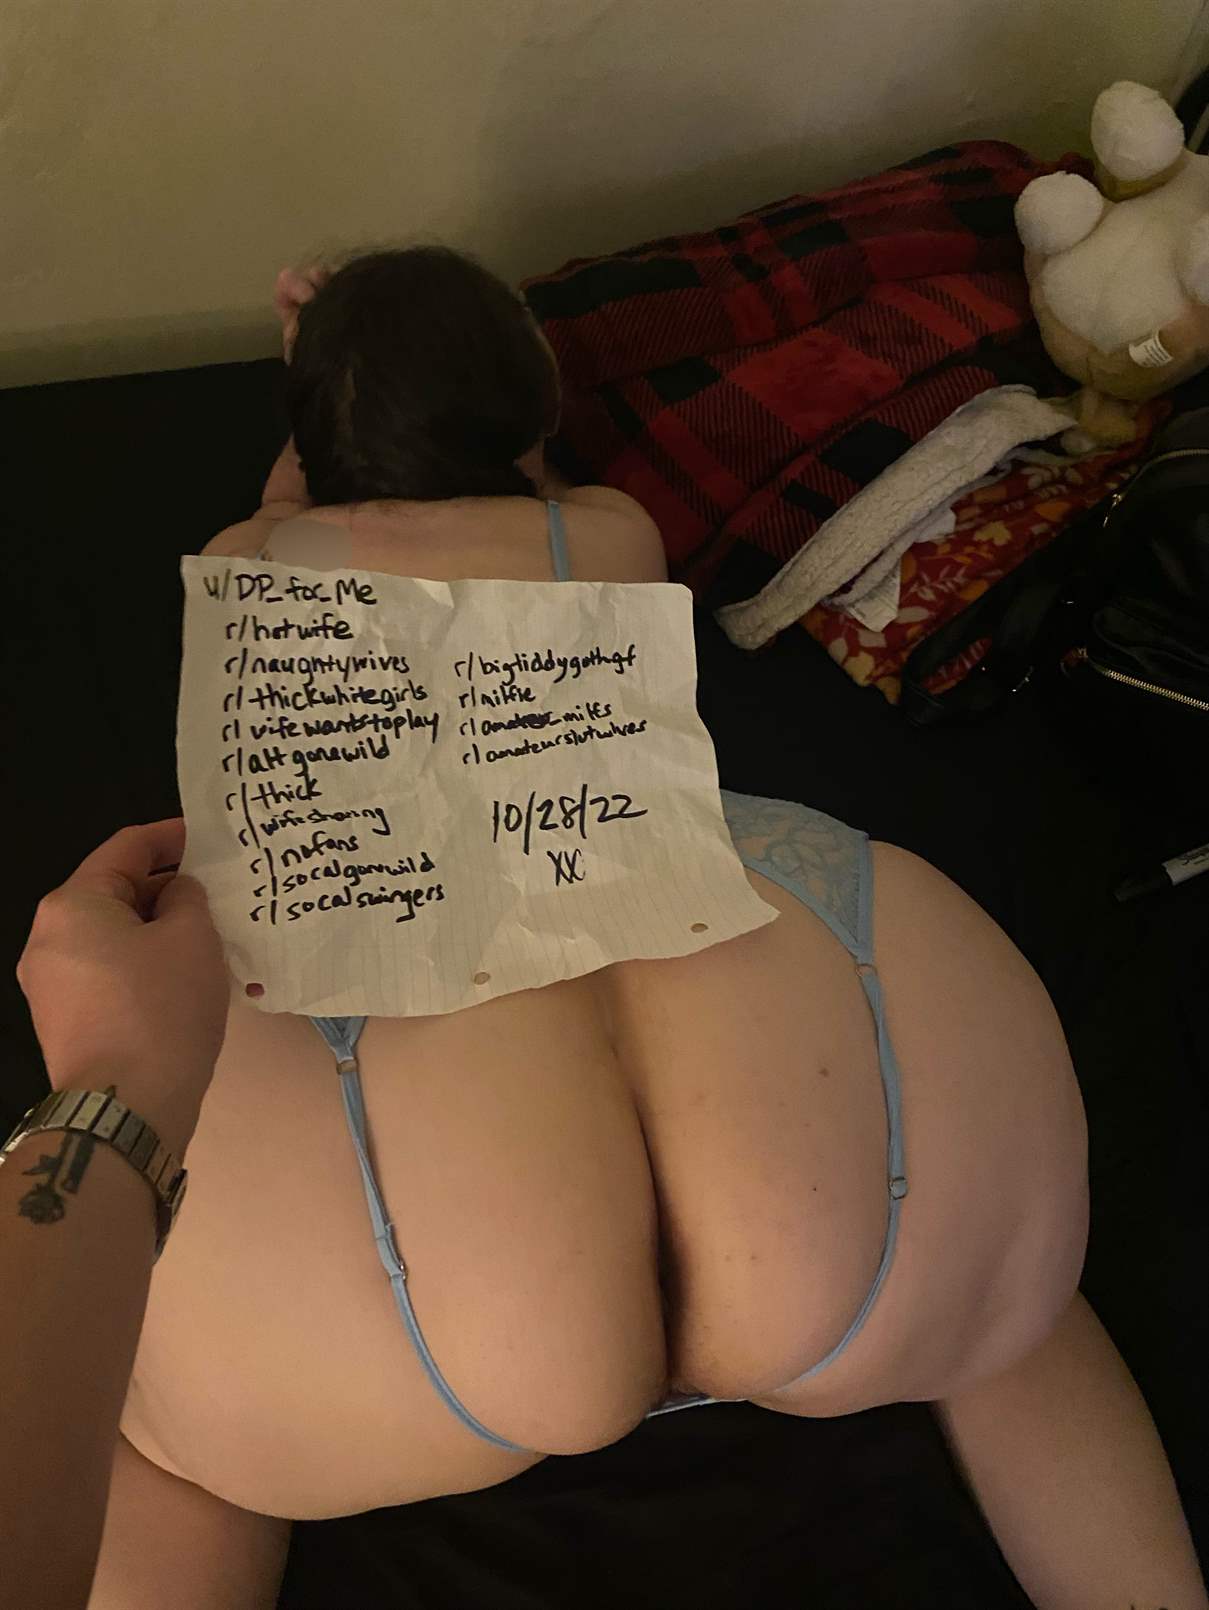 u/DP_for_Me
r/hotwife
r/naughtywives
r/thickwhitegirls
r/wifewantstoplay
r/altgonewild
r/thick
r/wifesharing
r/nofans
r/socalgonewild
r/socalswingers
r/bigtiddygothgf
r/milfie
r/amateur_milfs
r/amateurslutwives
10/28/22